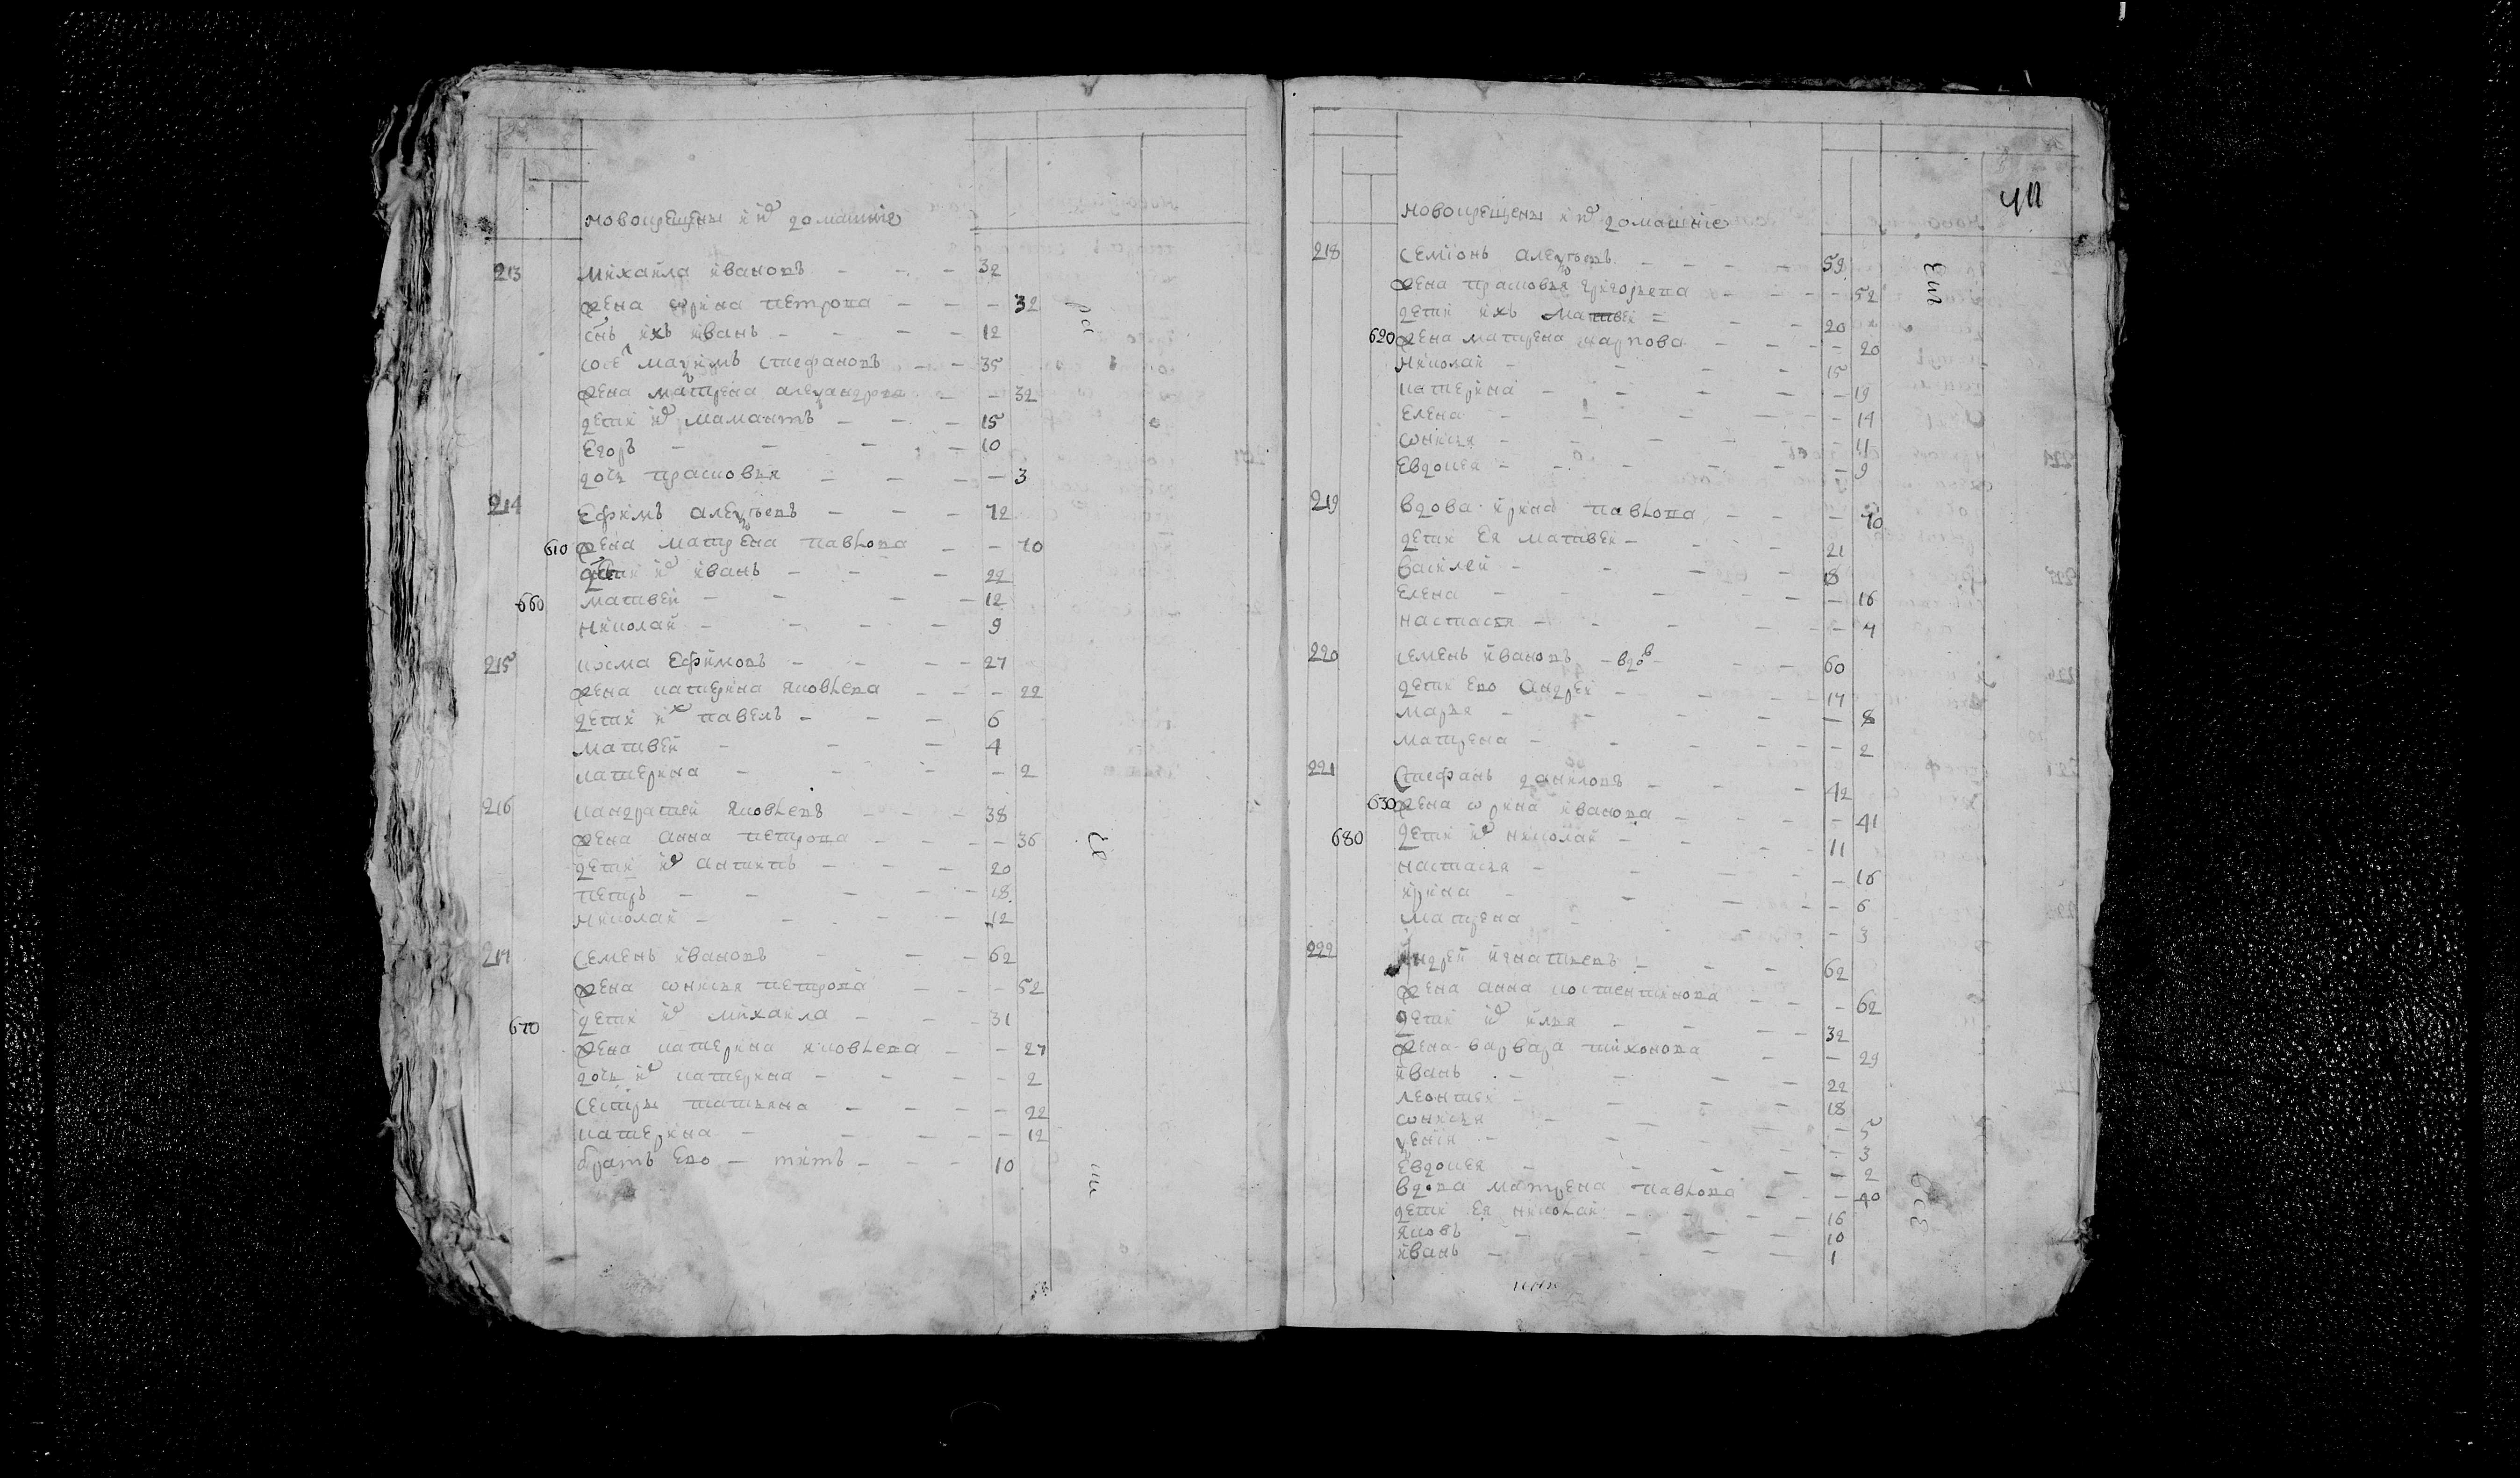 новокрещены и их домашние
213 михайла ивановъ — — — 32
жена ирина петрова — — — 32
снъ ихъ иванъ — — — 12
максимъ стефановъ — — 35
жена матрена александрова — — 32
дети их мамантъ — — — 15
егоръ — — — — 10
дочь прасковья — — — — 3
214 ефимъ алексѣевъ — — — 72
610 жена матрена павлова — — 70
дети их иванъ — — — 22
660 матвей — — — — 12
николай — — — — 9
215 козма ефимовъ — — — — 27
жена катерина яковлева — — — 22
дети их павелъ — — — 6
матвей — — — 4
катерина — — — — 2
216 кандратей яковлевъ — — — 38
жена анна петрова — — — — 36
дети их антипъ — — — 20
петръ — — — — — 18
николай — — — — 12
217 семенъ ивановъ — — — 62
жена петрова — — — 52
670 дети их михайла — — — 31
жена катерина яковлева — — 27
дочь их катерина — — — — 2
сестры татьяна — — — — 22
катерина — — — — — 12
братъ ево — титъ — — — 10
новокрещены и их домашние
40
218 семионъ алексѣевъ — — — — 59
жена прасковья григорьева — — — — 52
дети ихъ матвеи — — — 20
620 жена матрена карпова — — — — 20
николай — — — — 15
катерина — — — — — 19
елена — — — — — 14
— — — — — 11
евдокея — — — — — 9
219 вдова ирина павлова — — — 70
дети ея матвеи — — — 21
василей — — — — 18
елена — — — — — 16
настасья — — — — — 7
220 семенъ ивановъ — вдов — — — 60
дети ево андреи — — — — 17
марья — — — — — 8
матрена — — — — — 2
221 стефанъ даниловъ — — — — 42
630 жена ирина иванова — — — — 41
680 дети их николай — — — — 11
настасья — — — — — 16
ирина — — — — — 6
матрена — — — — 3
222 андрей игнатьевъ — — — 62
жена анна костентинова — — — 62
дети их илья — — — — 32
жена варвара тихонова — — 29
иванъ — — — — 22
леонтеи — — — — 18
— — — — 5
— — — — 3
евдокея — — — — — 2
вдова матрена павлова — — — 40
дети ея николаи — — — — 16
яковъ — — — — 10
иванъ — — — — 1